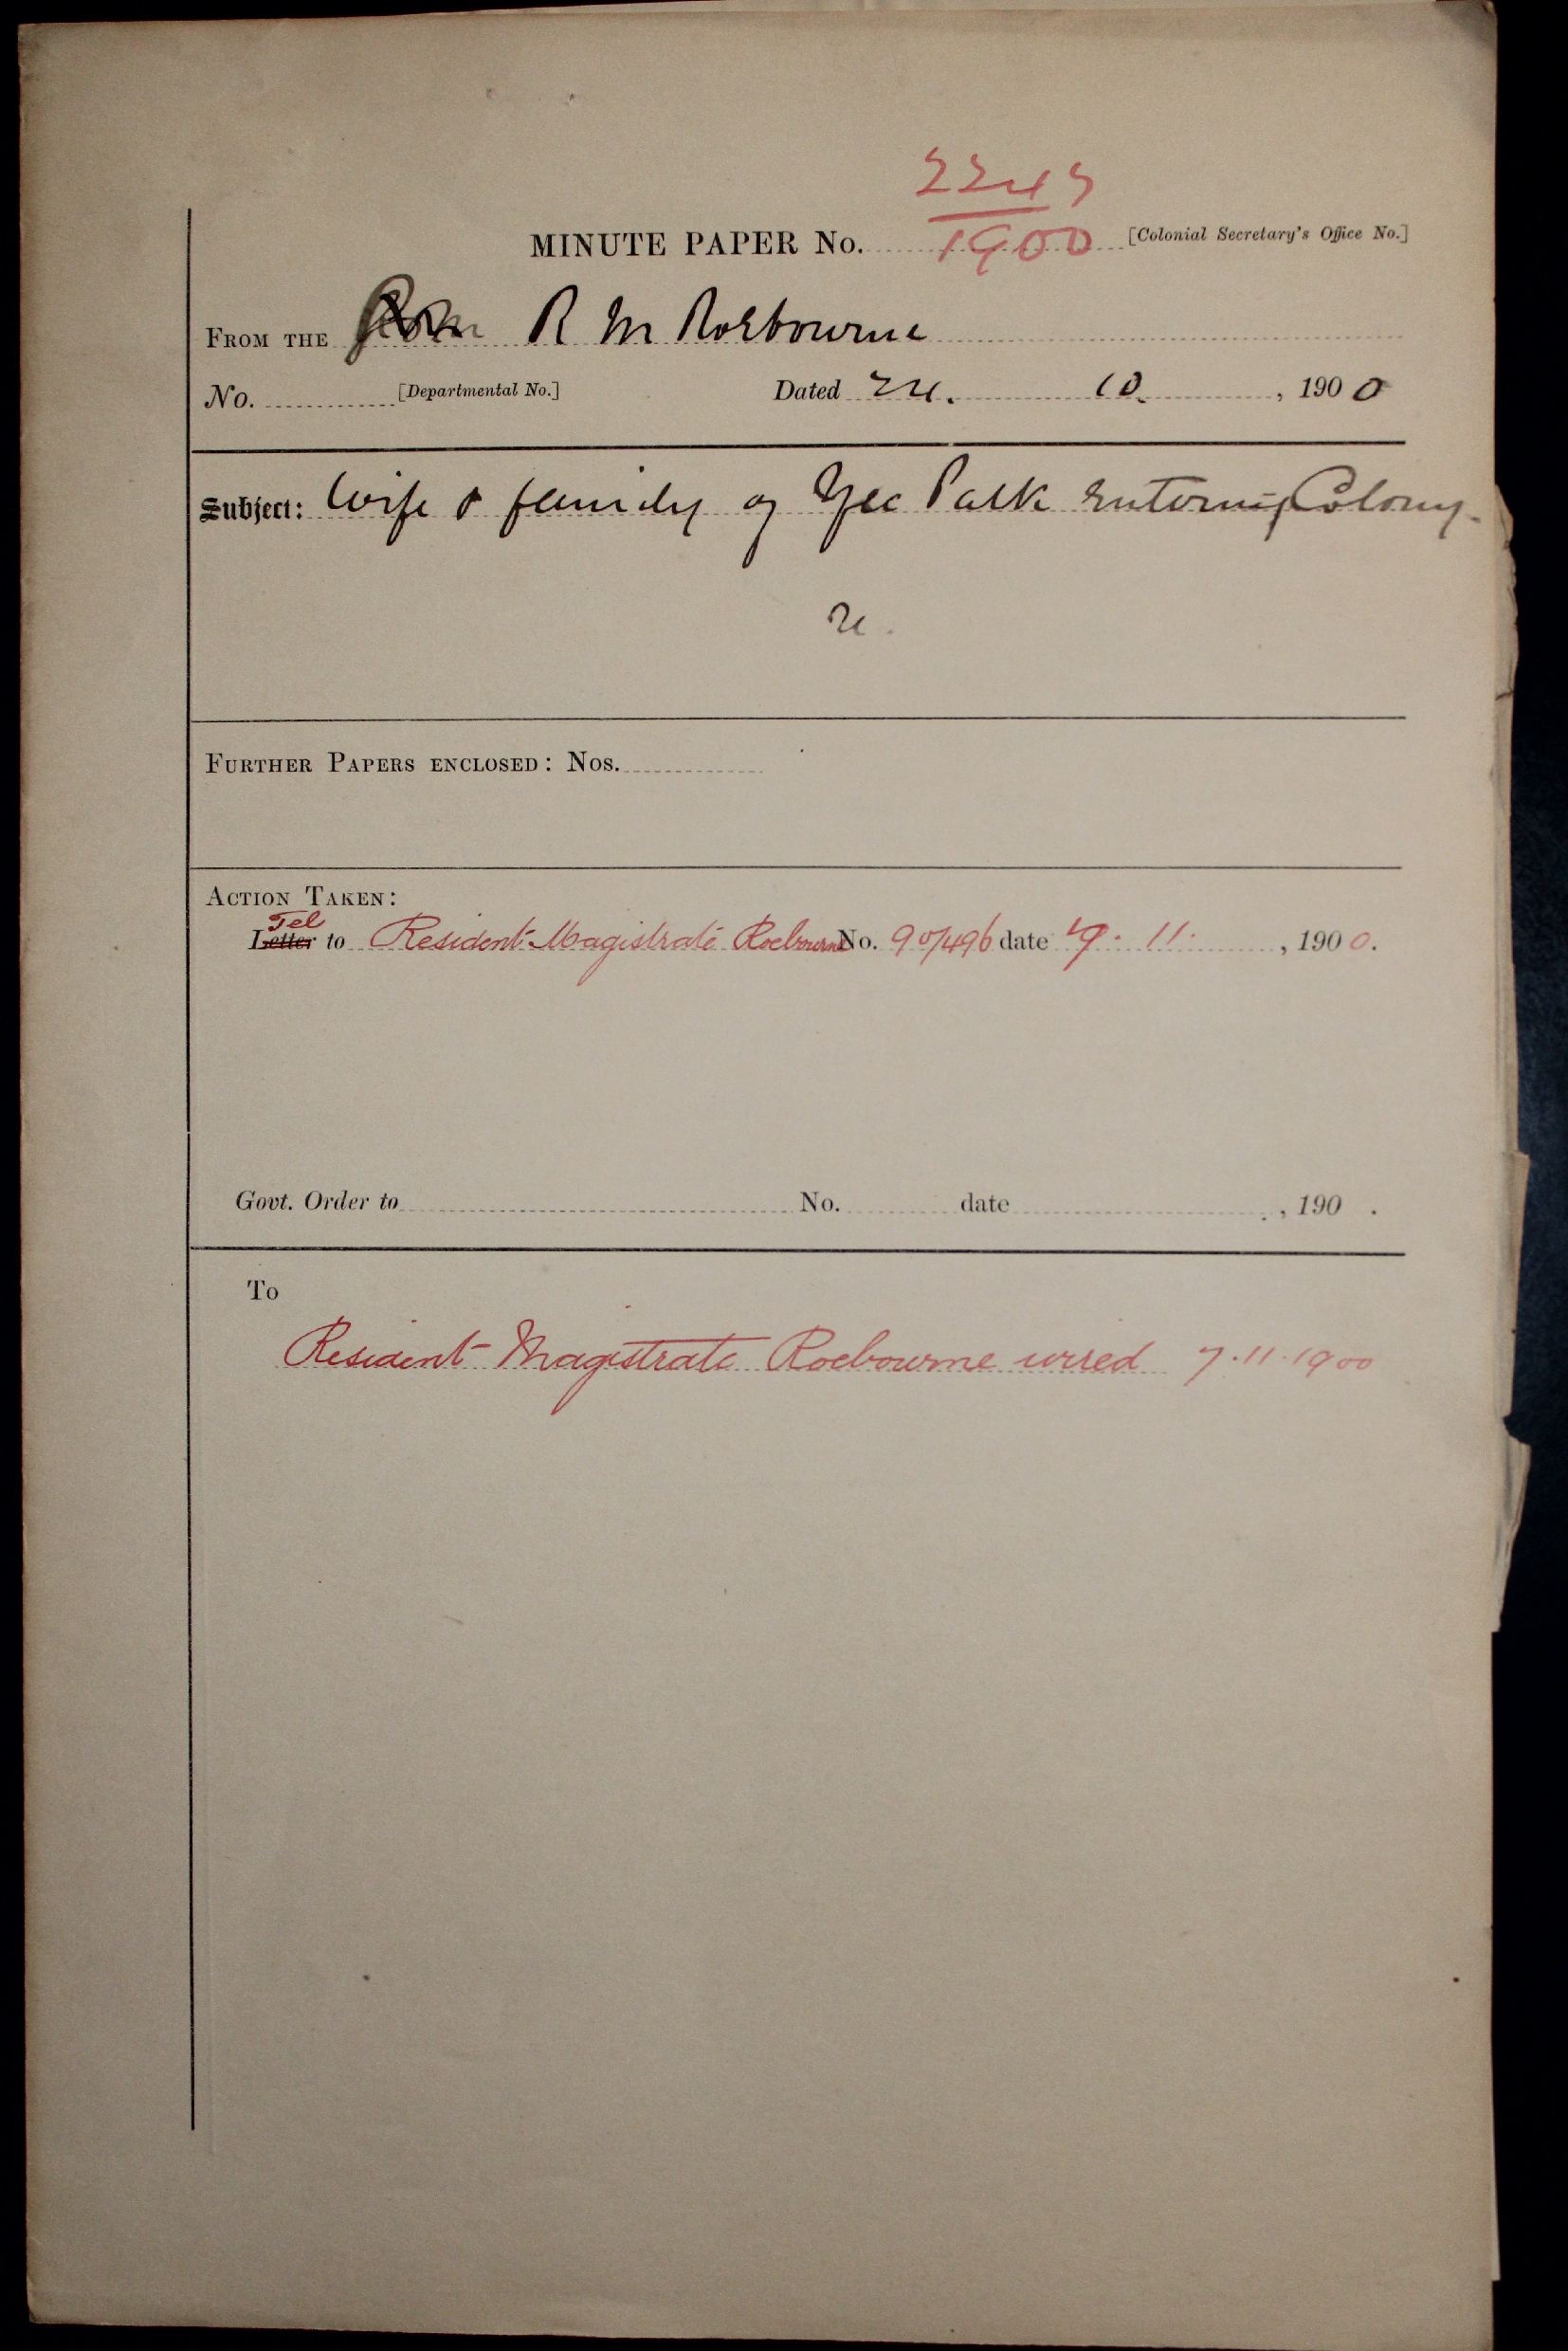 2245
MINUTE PAPER No. 1900 [Colonial Secretary's Office No.]
FROM THE R M Roebourne
No. [Departmental No.] Dated 24. 10. , 1900
Subject: Wife & family of Yee Palk entering Colony.
re.
FURTHER PAPERS ENCLOSED: Nos.
ACTION TAKEN:
Tel
Letter to Resident Magistrate Roebourne No. 90/496 date 7. 11. , 1900.
Govt. Order to No. date , 190 .
To
Resident Magistrate Roebourne wired 7.11.1900